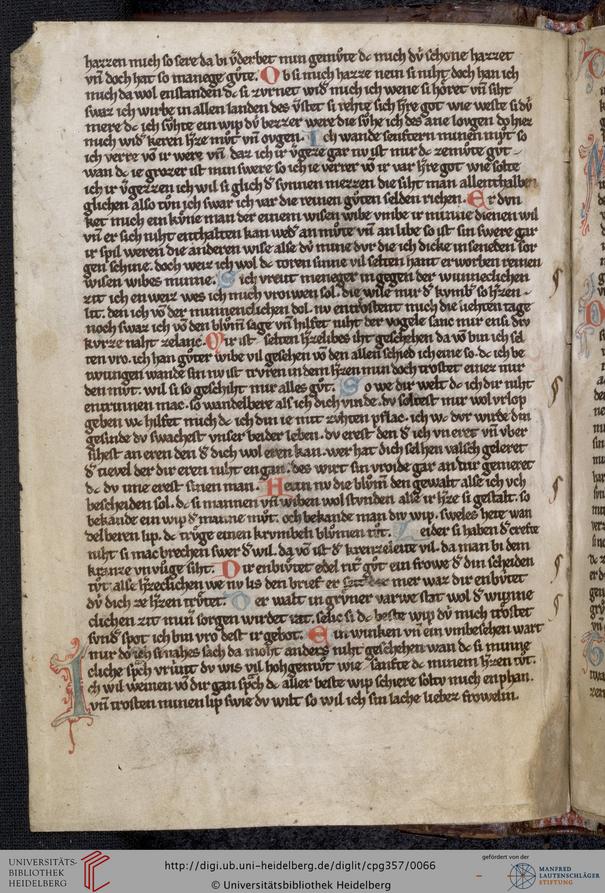 hazzen mich so sere da bi v͛derbet min gemv̊te dc mich dv̓ schone hazzet
vn̄ doch hat so manege gv̊te. Ob si mich hazze nein si niht doch han ich
mich da wol enstanden dc si zvrnet wid͛ mich ich wene si horet vn̄ siht
swaz ich wirbe in allen landen des
mere dc ich fv̊hte ein wip dv̓ bezzer were die fv̊he ich des ane lovgen do her
mich wid͛ keren h͛ze mv̊t vn̄ ovgen. Ich wande senftern minen mv̊t so
ich verre vō ir were vn̄ daz ich ir v͛geze gar nv ist mir dc zemv̊te gv̊t
wan dc ie grozer ist min swere so ich ie verrer vō ir var h͛re got wie solte
ich ir v͛gezzen ich wil si glich d͛ svnnen mezzen die siht man allenthalben
glichen also tv̊n ich swar ich var die reinen gv̊ten selden richen. Er dvn
ket mich ein kv̊ne man der einem wisen wibe vmbe ir minne dienen wil
vn̄ er sich niht enthalten kan wed͛ an mv̊te vn̄ an libe so ist sin swere gar
ir spil weren die anderen wise alse dv̓ mine dvr die ich dicke in seneden sor
gen schine. doch weiz ich wol dc toren sinne vil selten hant erworben reinen
wisen wibes minne. Sich vreut meneger ingegen der wunneclichen
zit ich en weiz wes ich mich vrowen sol. die wile mir d͛ kvmb͛ so h͛zen
lit. den ich vō der minneclichen dol. nv entrostent mich die liehten tage
noch swaz ich vō den blv̊mē sage vn̄ hilfet niht der vogele sanc mir ensi div
kvrze naht zelanc. Mir ist selten h͛zeliebes iht geschehen da vō bin ich sel
ten vro. ich han gv̊ter wibe vil gesehen vō den allen schied ich eine so. dc ich be
twungen wande sin nv ist trvren in dem h͛zen min doch trostet einez mir
den mv̊t. wil si so geschiht mir alles gv̊t. So we dir welt dc ich dir niht
entrinnen mac. so wandelbere als ich dich vinde. dv soltest mir wol vrlop
geben wc hilfet mich dc ich din ie mit zvhten pflac. ich wc dvr wirde din
gesinde dv swachest vnser beider leben. dv erest den d͛ ich vn eret vn̄ vber
sihest an eren den d͛ dich wol eren kan. wer hat dich selhen valsch geleret
d͛ tievel der dir eren niht engan. des wirt sin vroide gar an dir gemeret
dc dv ime erest sinen man. Hetin nv die blv̊mē den gewalt alse ich vch
bescheiden sol. dc si mannen vn̄ wiben wol stvnden alse ir h͛ze si gestalt. so
bekande ein wip d͛ manne mv̊t. och bekande man div wip. sweles hete wan
delberen lip. dc trv̊ge einen krvmbeh blv̊men hv̊t. Leider si haben d͛ crefte
niht si mac brechen swer d͛ wil. da vō ist d͛ krenzeleite vil. da man bi dem
kranze vn vv̊ge siht. Dir enbiv̊tet edel rit͛ gv̊t ein frowe d͛ din scheiden
tv̊t alse h͛zeclichen we nv lis den brief er mer waz dir enbv̊tet
dv̓ dich ze h͛zen trv̊tet. Der walt in grv̊ner varwe stat wol d͛ wunne
clichen zit min sorgen wirdet rat. selic si dc beste wip dv̓ mich trostet
svnd͛ spot ich bin vro dest ir gebot. Ein winken vn̄ ein vmbesehen wart
mir do ich si nahes sach da moht anders niht geschehen wan dc si minne
cliche sp͛ch vrivnt dv wis vil hohgemv̊t wie sanfte dc minem h͛zen tv̊t.
Ich wil weinen vō dir han sp͛ch dc aller beste wip schiere soltv mich enphan.
vn̄ trosten minen lip swie dv wilt so wil ich sin lache liebez frowelin.
UNIVERSITÄTS-
BIBLIOTHEK
HEIDELBERG
http://digi.ub.uni-heidelberg.de/diglit/cpg357/0066
© Universitätsbibliothek Heidelberg
gefördert von der
MANFRED
LAUTENSCHLÄGER
STIFTUNG